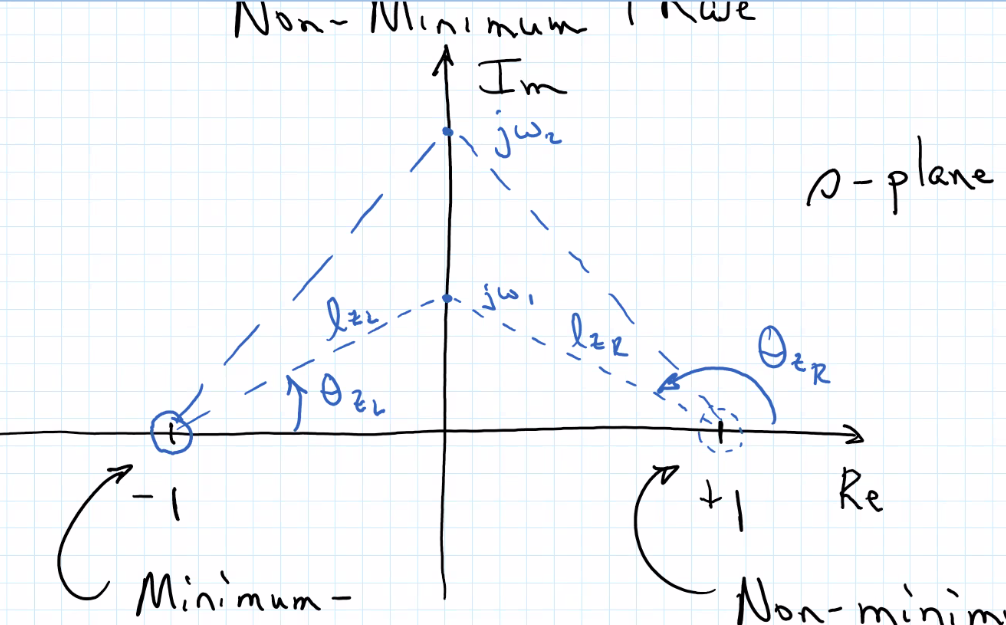 Non-Minimum
Im
jω₂
s-plane
jω₁
l_zL
l_zR
θ_zR
θ_zL
-1
+1
Re
Minimum-
Non-minim